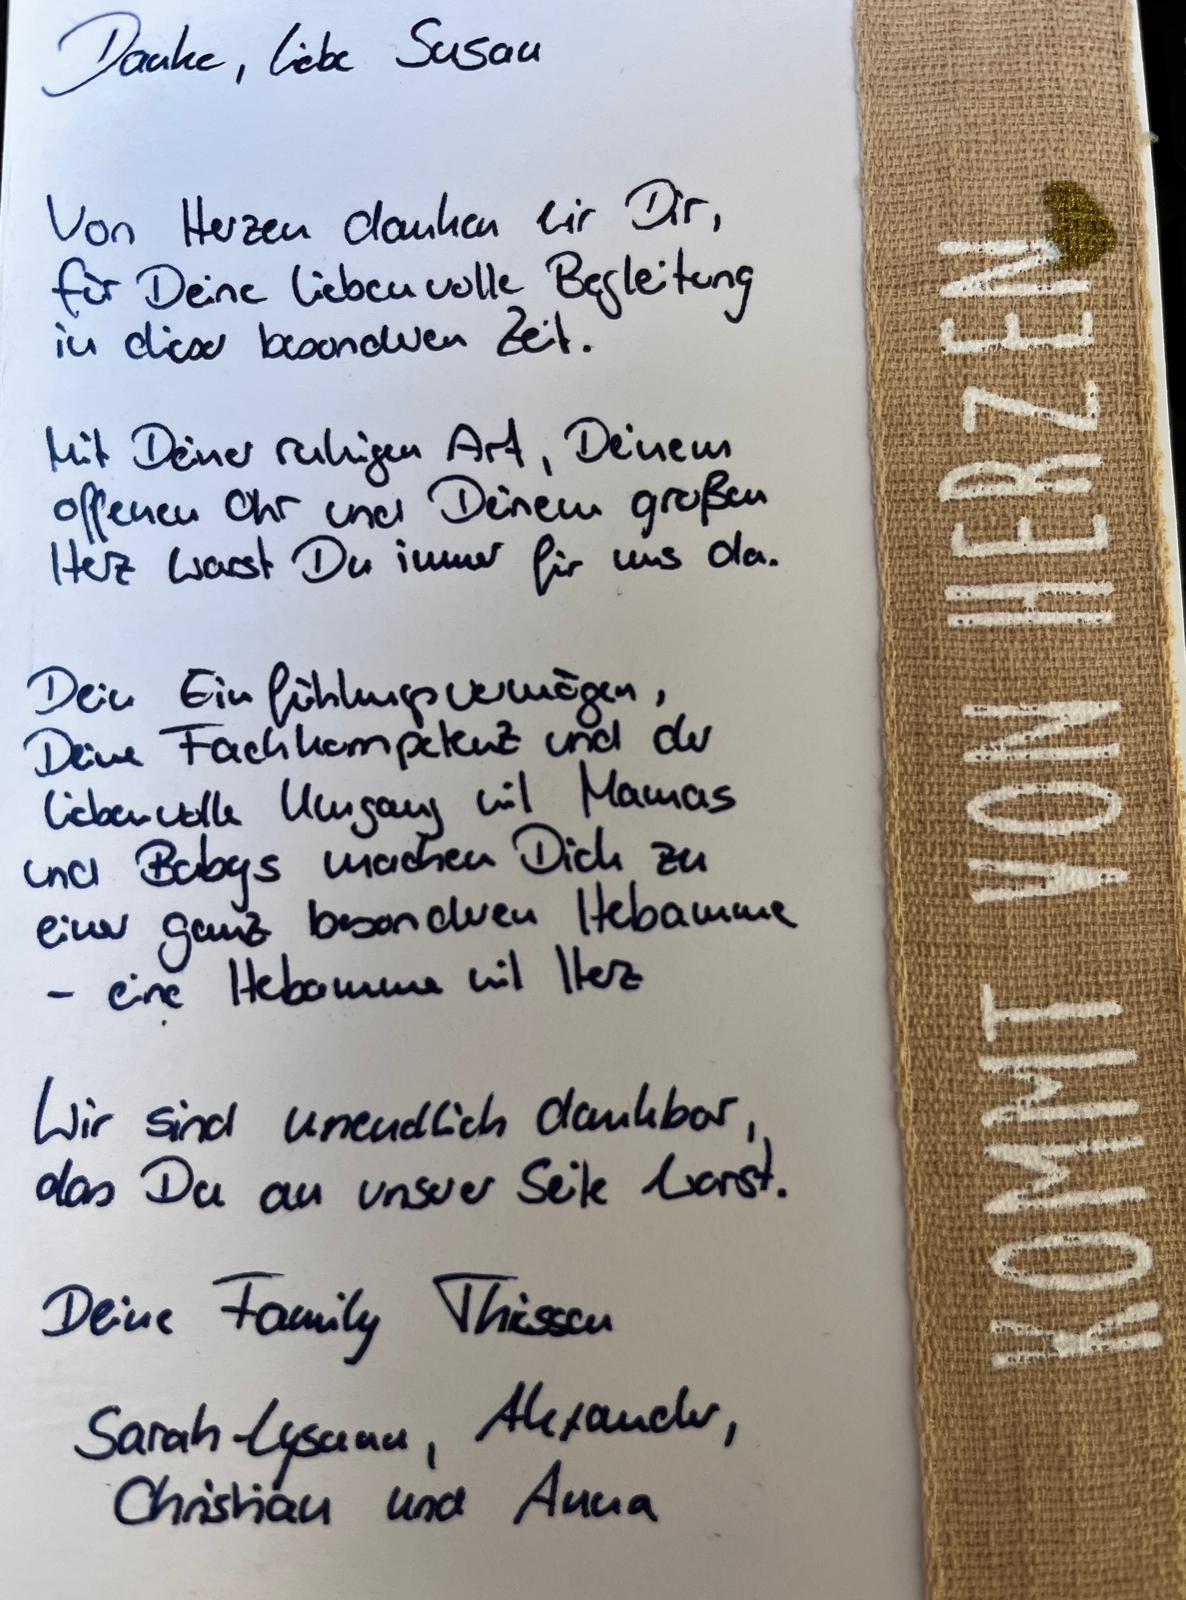 Danke, liebe Susan
Von Herzen danken wir Dir,
für Deine liebenvolle Begleitung
in dieser besonderen Zeit.
Mit Deiner ruhigen Art, Deinem
offenen Ohr und Deinem großen
Herz warst Du immer für uns da.
Dein Einfühlungsvermögen,
Deine Fachkompetenz und der
liebenvolle Umgang mit Mamas
und Babys machen Dich zu
einer ganz besonderen Hebamme
- eine Hebamme mit Herz
Wir sind unendlich dankbar,
das Du an unserer Seite warst.
Deine Family Thiessen
Sarah-Lysann, Alexander,
Christian und Anna
KOMMT VON HERZEN